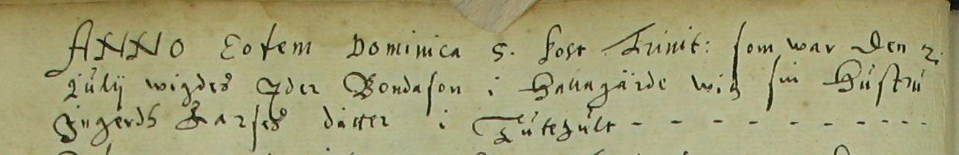 ANNO Eodem Dominica 5. post Trinit: som war den 2.
Julij wigdes Peder Bondason i Hallagärde wid sin Hustru
Ingerdh Larses dotter i - - - - - - - - - -